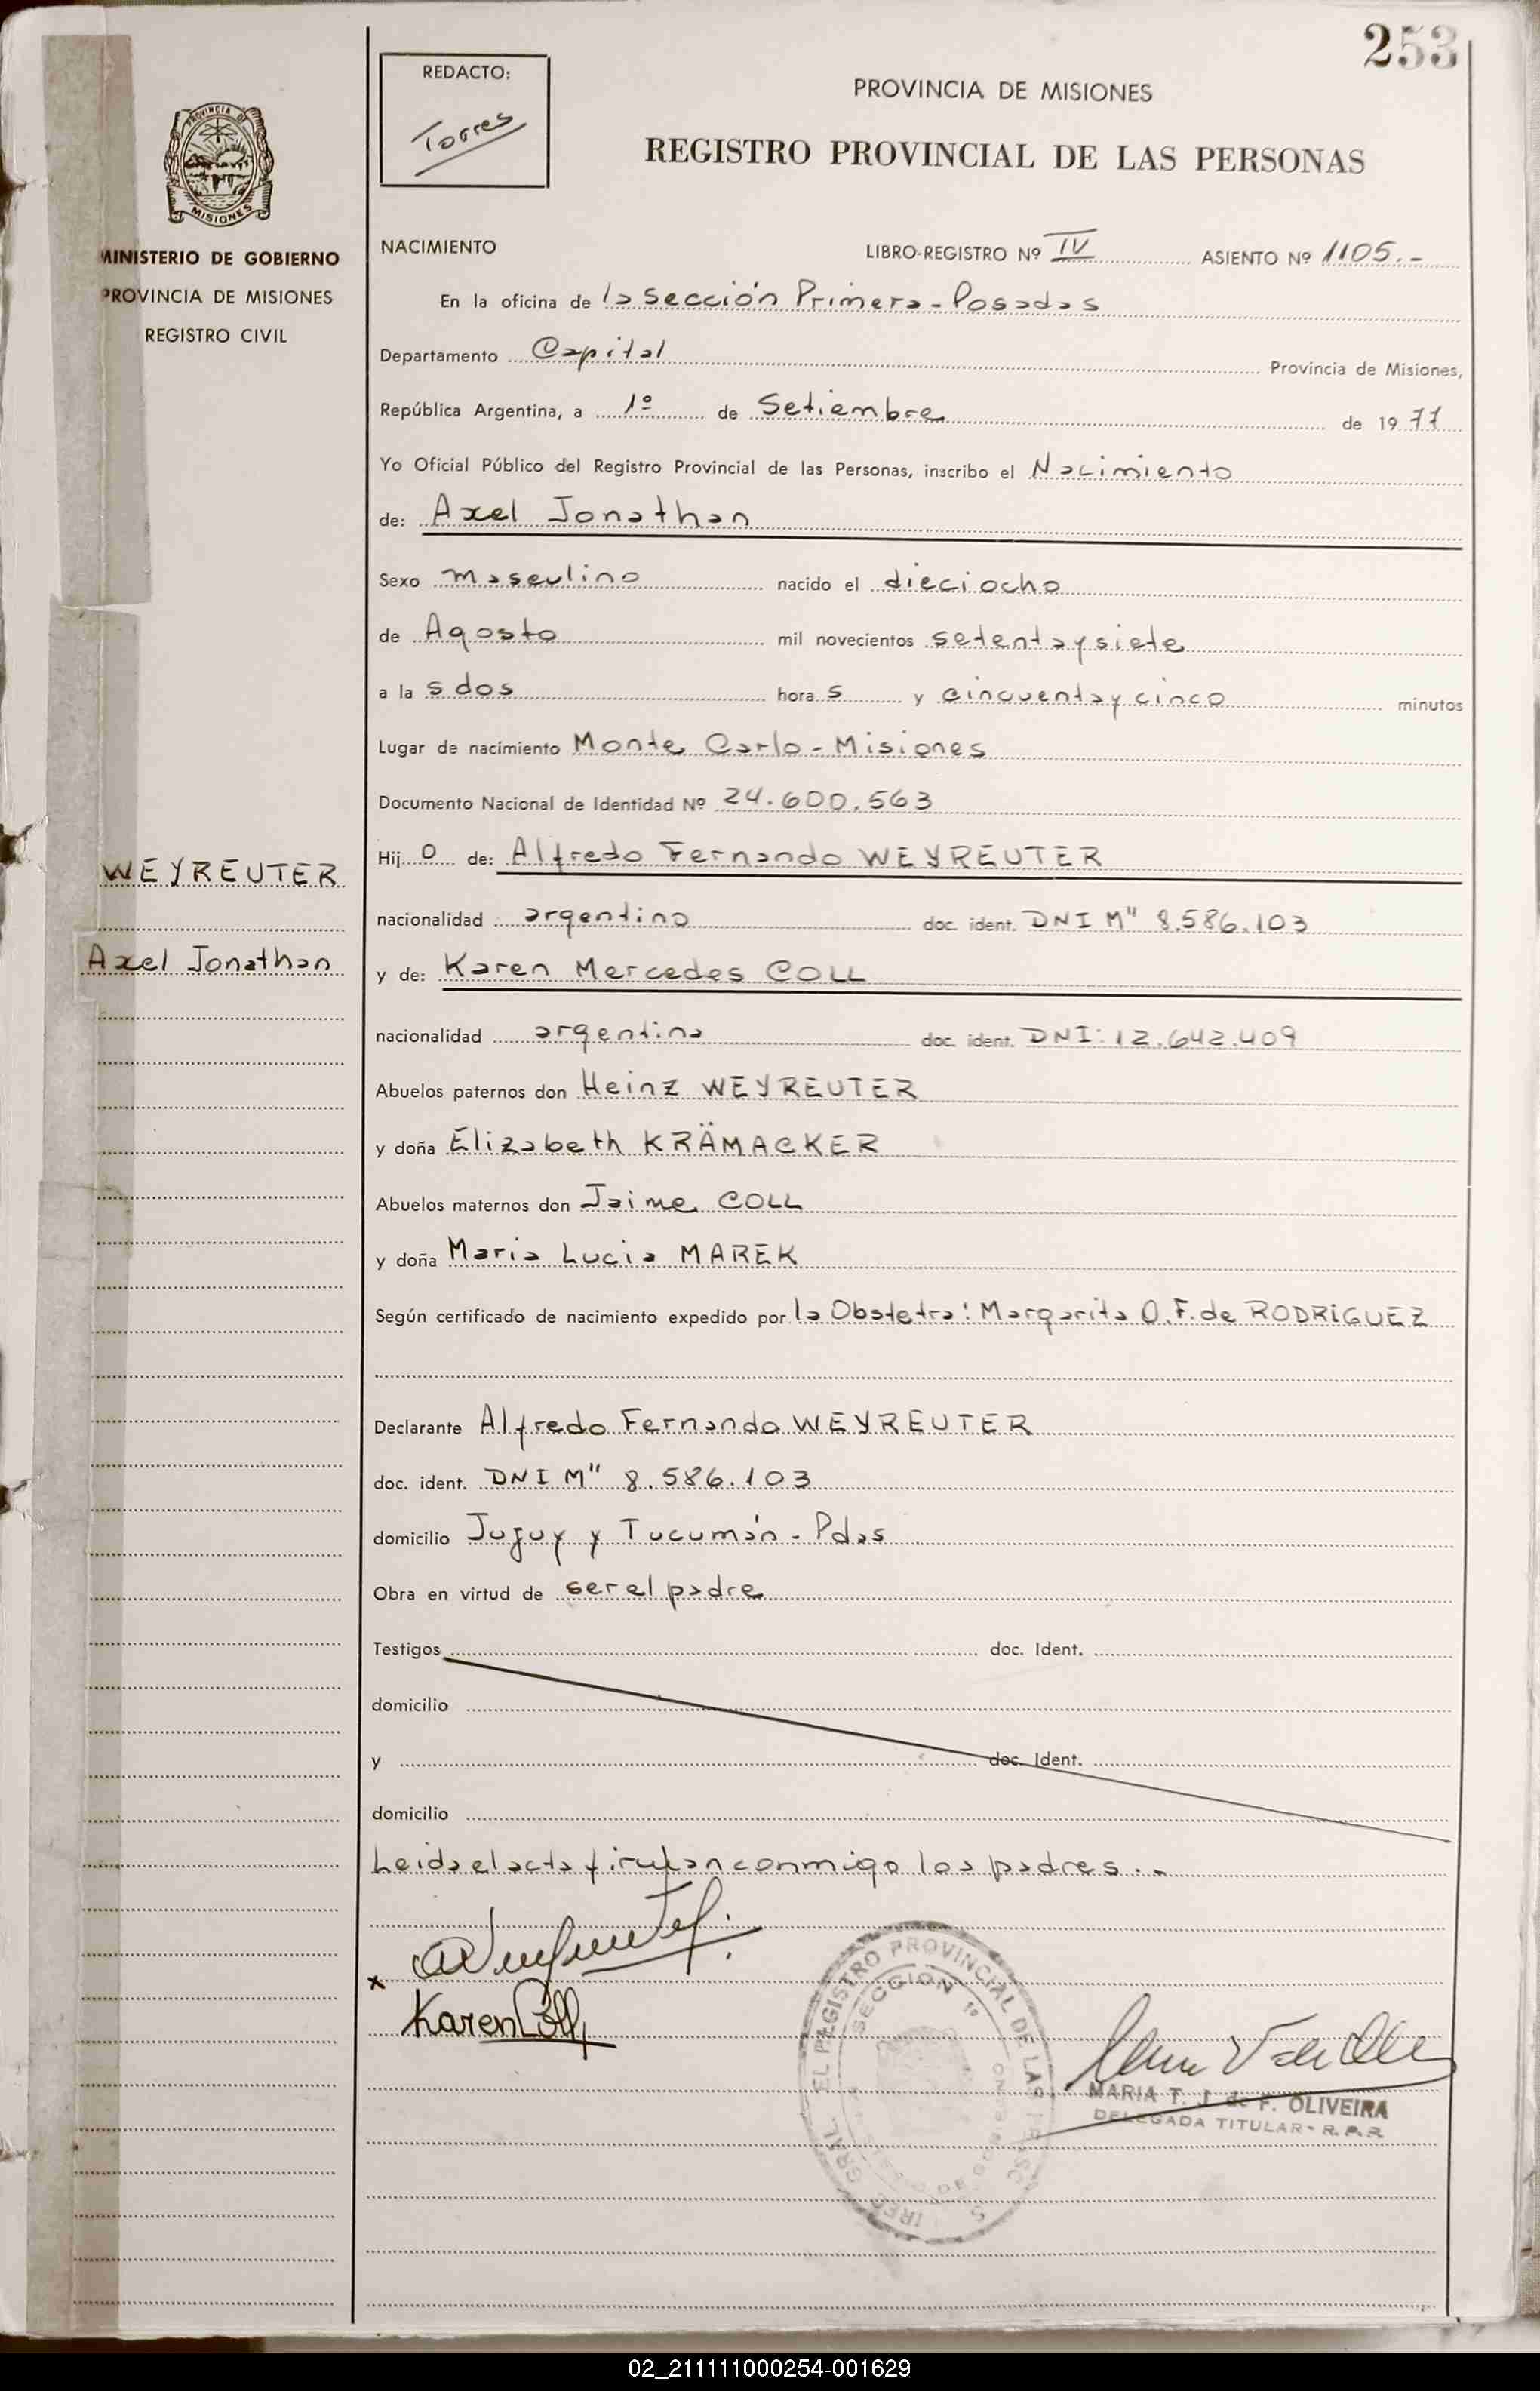 253
REDACTO:
Torres
PROVINCIA DE MISIONES
REGISTRO PROVINCIAL DE LAS PERSONAS
PROVINCIA DE
MISIONES
MINISTERIO DE GOBIERNO
PROVINCIA DE MISIONES
REGISTRO CIVIL
NACIMIENTO LIBRO-REGISTRO Nº IV ASIENTO Nº 1105.-
En la oficina de la Sección Primera - Posadas
Departamento Capital Provincia de Misiones,
República Argentina, a 1º de Setiembre de 1977
Yo Oficial Público del Registro Provincial de las Personas, inscribo el Nacimiento
de: Axel Jonathan
Sexo masculino nacido el dieciocho
de Agosto mil novecientos setenta y siete
a la s dos hora s y cincuenta y cinco minutos
Lugar de nacimiento Monte Carlo - Misiones
Documento Nacional de Identidad Nº 24.600.563
WEYREUTER
Axel Jonathan
Hij o de: Alfredo Fernando WEYREUTER
nacionalidad argentino doc. ident. DNI M" 8.586.103
y de: Karen Mercedes COLL
nacionalidad argentina doc. ident. DNI: 12.642.409
Abuelos paternos don Heinz WEYREUTER
y doña Elizabeth KRÄMACKER
Abuelos maternos don Jaime COLL
y doña Maria Lucia MAREK
Según certificado de nacimiento expedido por la Obstetra: Margarita O.F. de RODRIGUEZ
Declarante Alfredo Fernando WEYREUTER
doc. ident. DNI M" 8.586.103
domicilio Jujuy y Tucumán - Pdas
Obra en virtud de ser el padre
Testigos doc. Ident.
domicilio
y doc. Ident.
domicilio
Leida el acta firman conmigo los padres.-
x
Karen Coll
EL REGISTRO PROVINCIAL DE LAS
SECCION 1º
MARIA T. J. de F. OLIVEIRA
DELEGADA TITULAR - R.P.P.
02_211111000254-001629